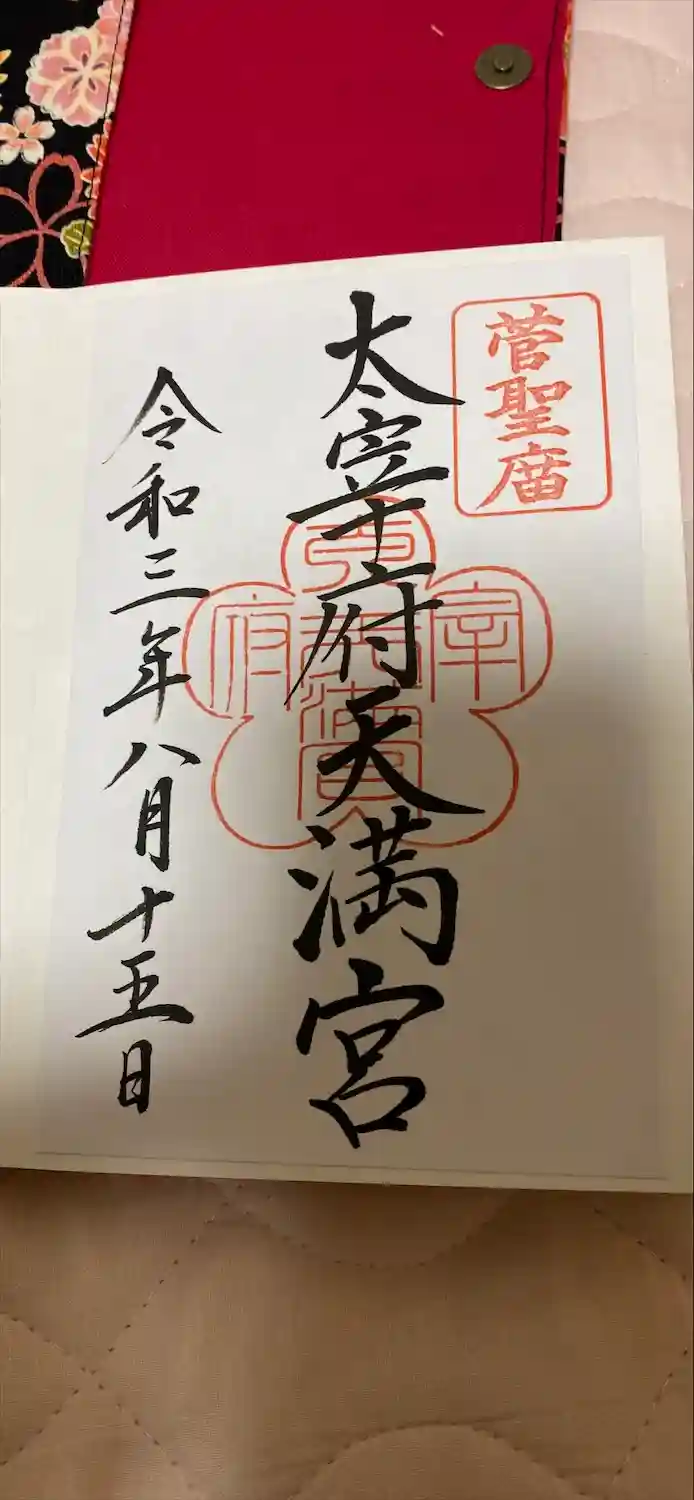 菅聖庿
太宰府天満宮
令和三年八月十五日
宰
府
天満宮